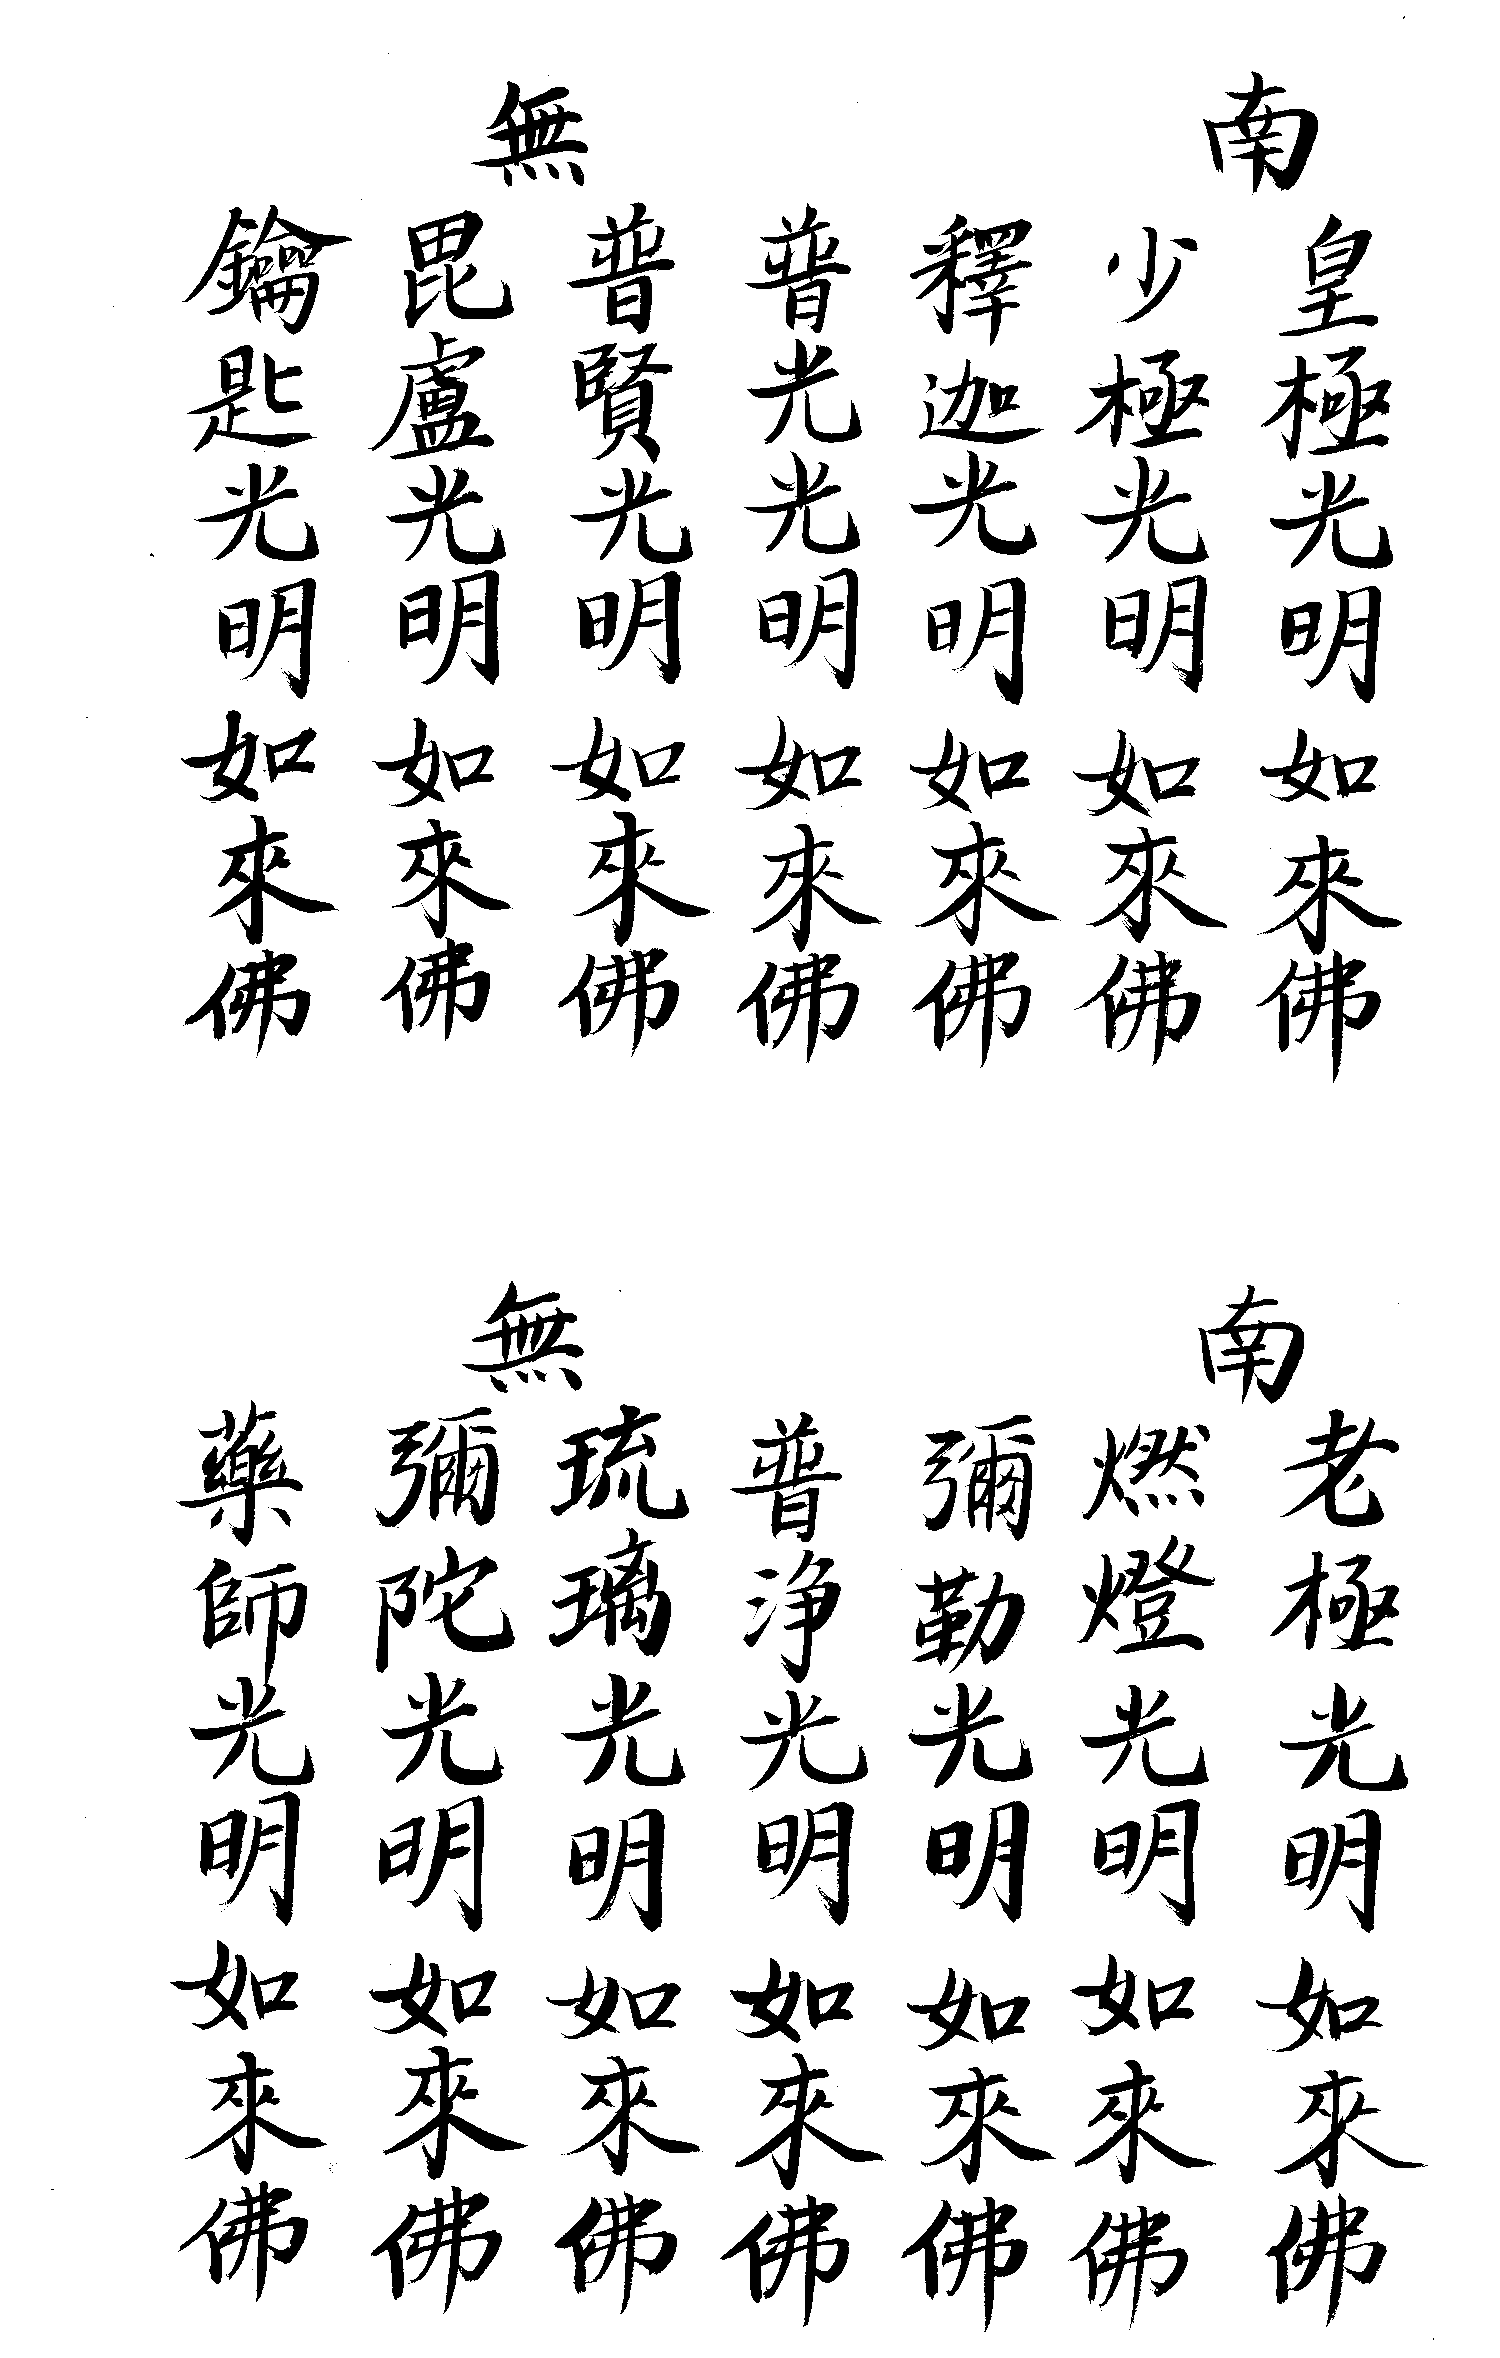 南無
皇極光明如來佛
少極光明如來佛
釋迦光明如來佛
普光光明如來佛
普賢光明如來佛
毘盧光明如來佛
鑰匙光明如來佛
南無
老極光明如來佛
燃燈光明如來佛
彌勒光明如來佛
普淨光明如來佛
琉璃光明如來佛
彌陀光明如來佛
藥師光明如來佛